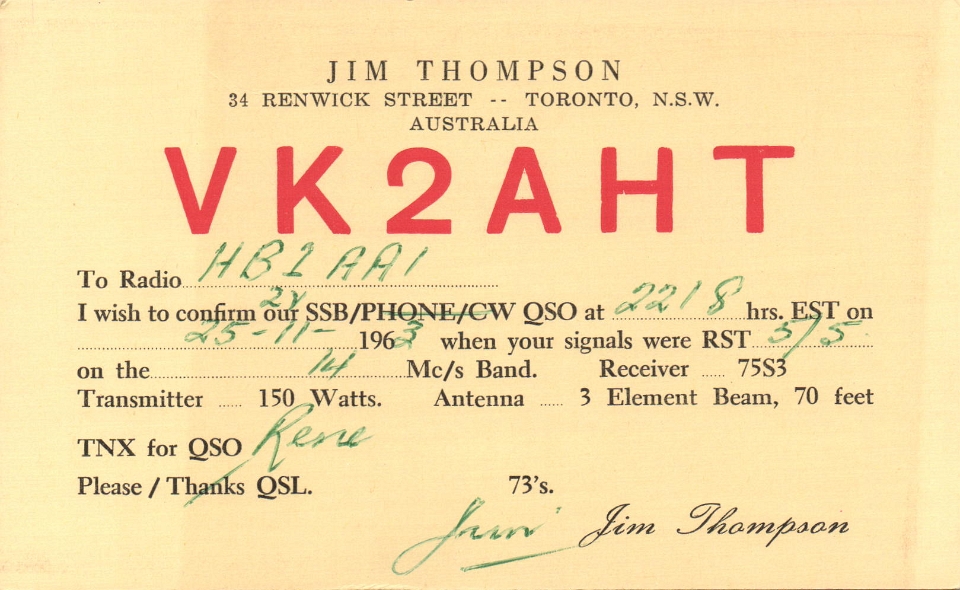 JIM THOMPSON
34 RENWICK STREET -- TORONTO, N.S.W.
AUSTRALIA
VK2AHT
To Radio HB1AAI
I wish to confirm our 2X SSB/PHONE/CW QSO at 2218 hrs. EST on
25-11-1963 when your signals were RST 5/5
on the 14 Mc/s Band. Receiver ...... 75S3
Transmitter ...... 150 Watts. Antenna ...... 3 Element Beam, 70 feet
TNX for QSO Rene
Please / Thanks QSL. 73's.
Jim Jim Thompson